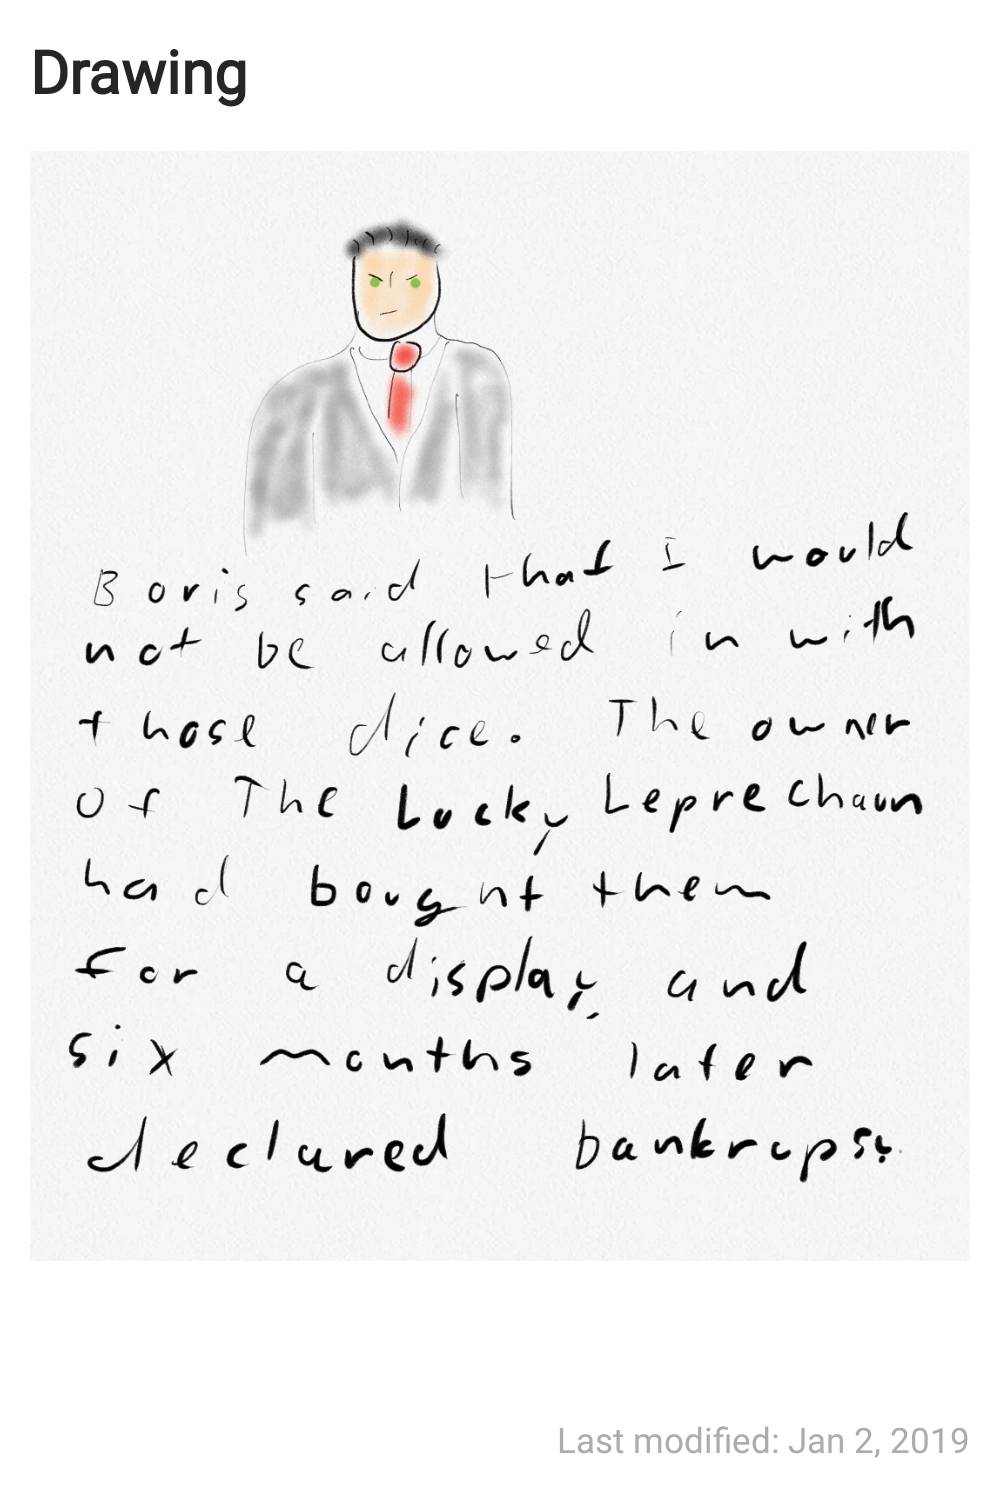 Drawing
Boris said that I would
not be allowed in with
those dice. The owner
of The Lucky Leprechaun
had bought them
for a display, and
six months later
declared bankrupsy.
Last modified: Jan 2, 2019